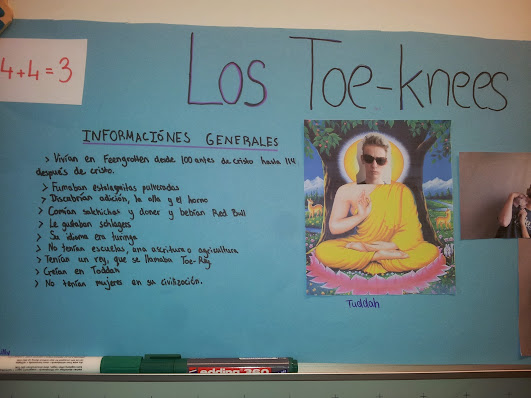 Los Toe-knees
4+4=3
INFORMACIÓNES GENERALES
> Vivían en Feengrotten desde 100 antes de cristo hasta 114
después de cristo.
> Fumaban estalagmitas pulveradas
> Discubrían adición, la olla y el horno
> Comían salchichas y doner y bebían Red Bull
> Le gustaban schlagers
> Su idioma era turinga
> No tenían escuelas, una escritura o agricultura
> Tenían un rey, que se llamaba Toe-Rey
> Creían en Toddah
> No tenían mujeres en su civilización.
Tuddah
edding 360